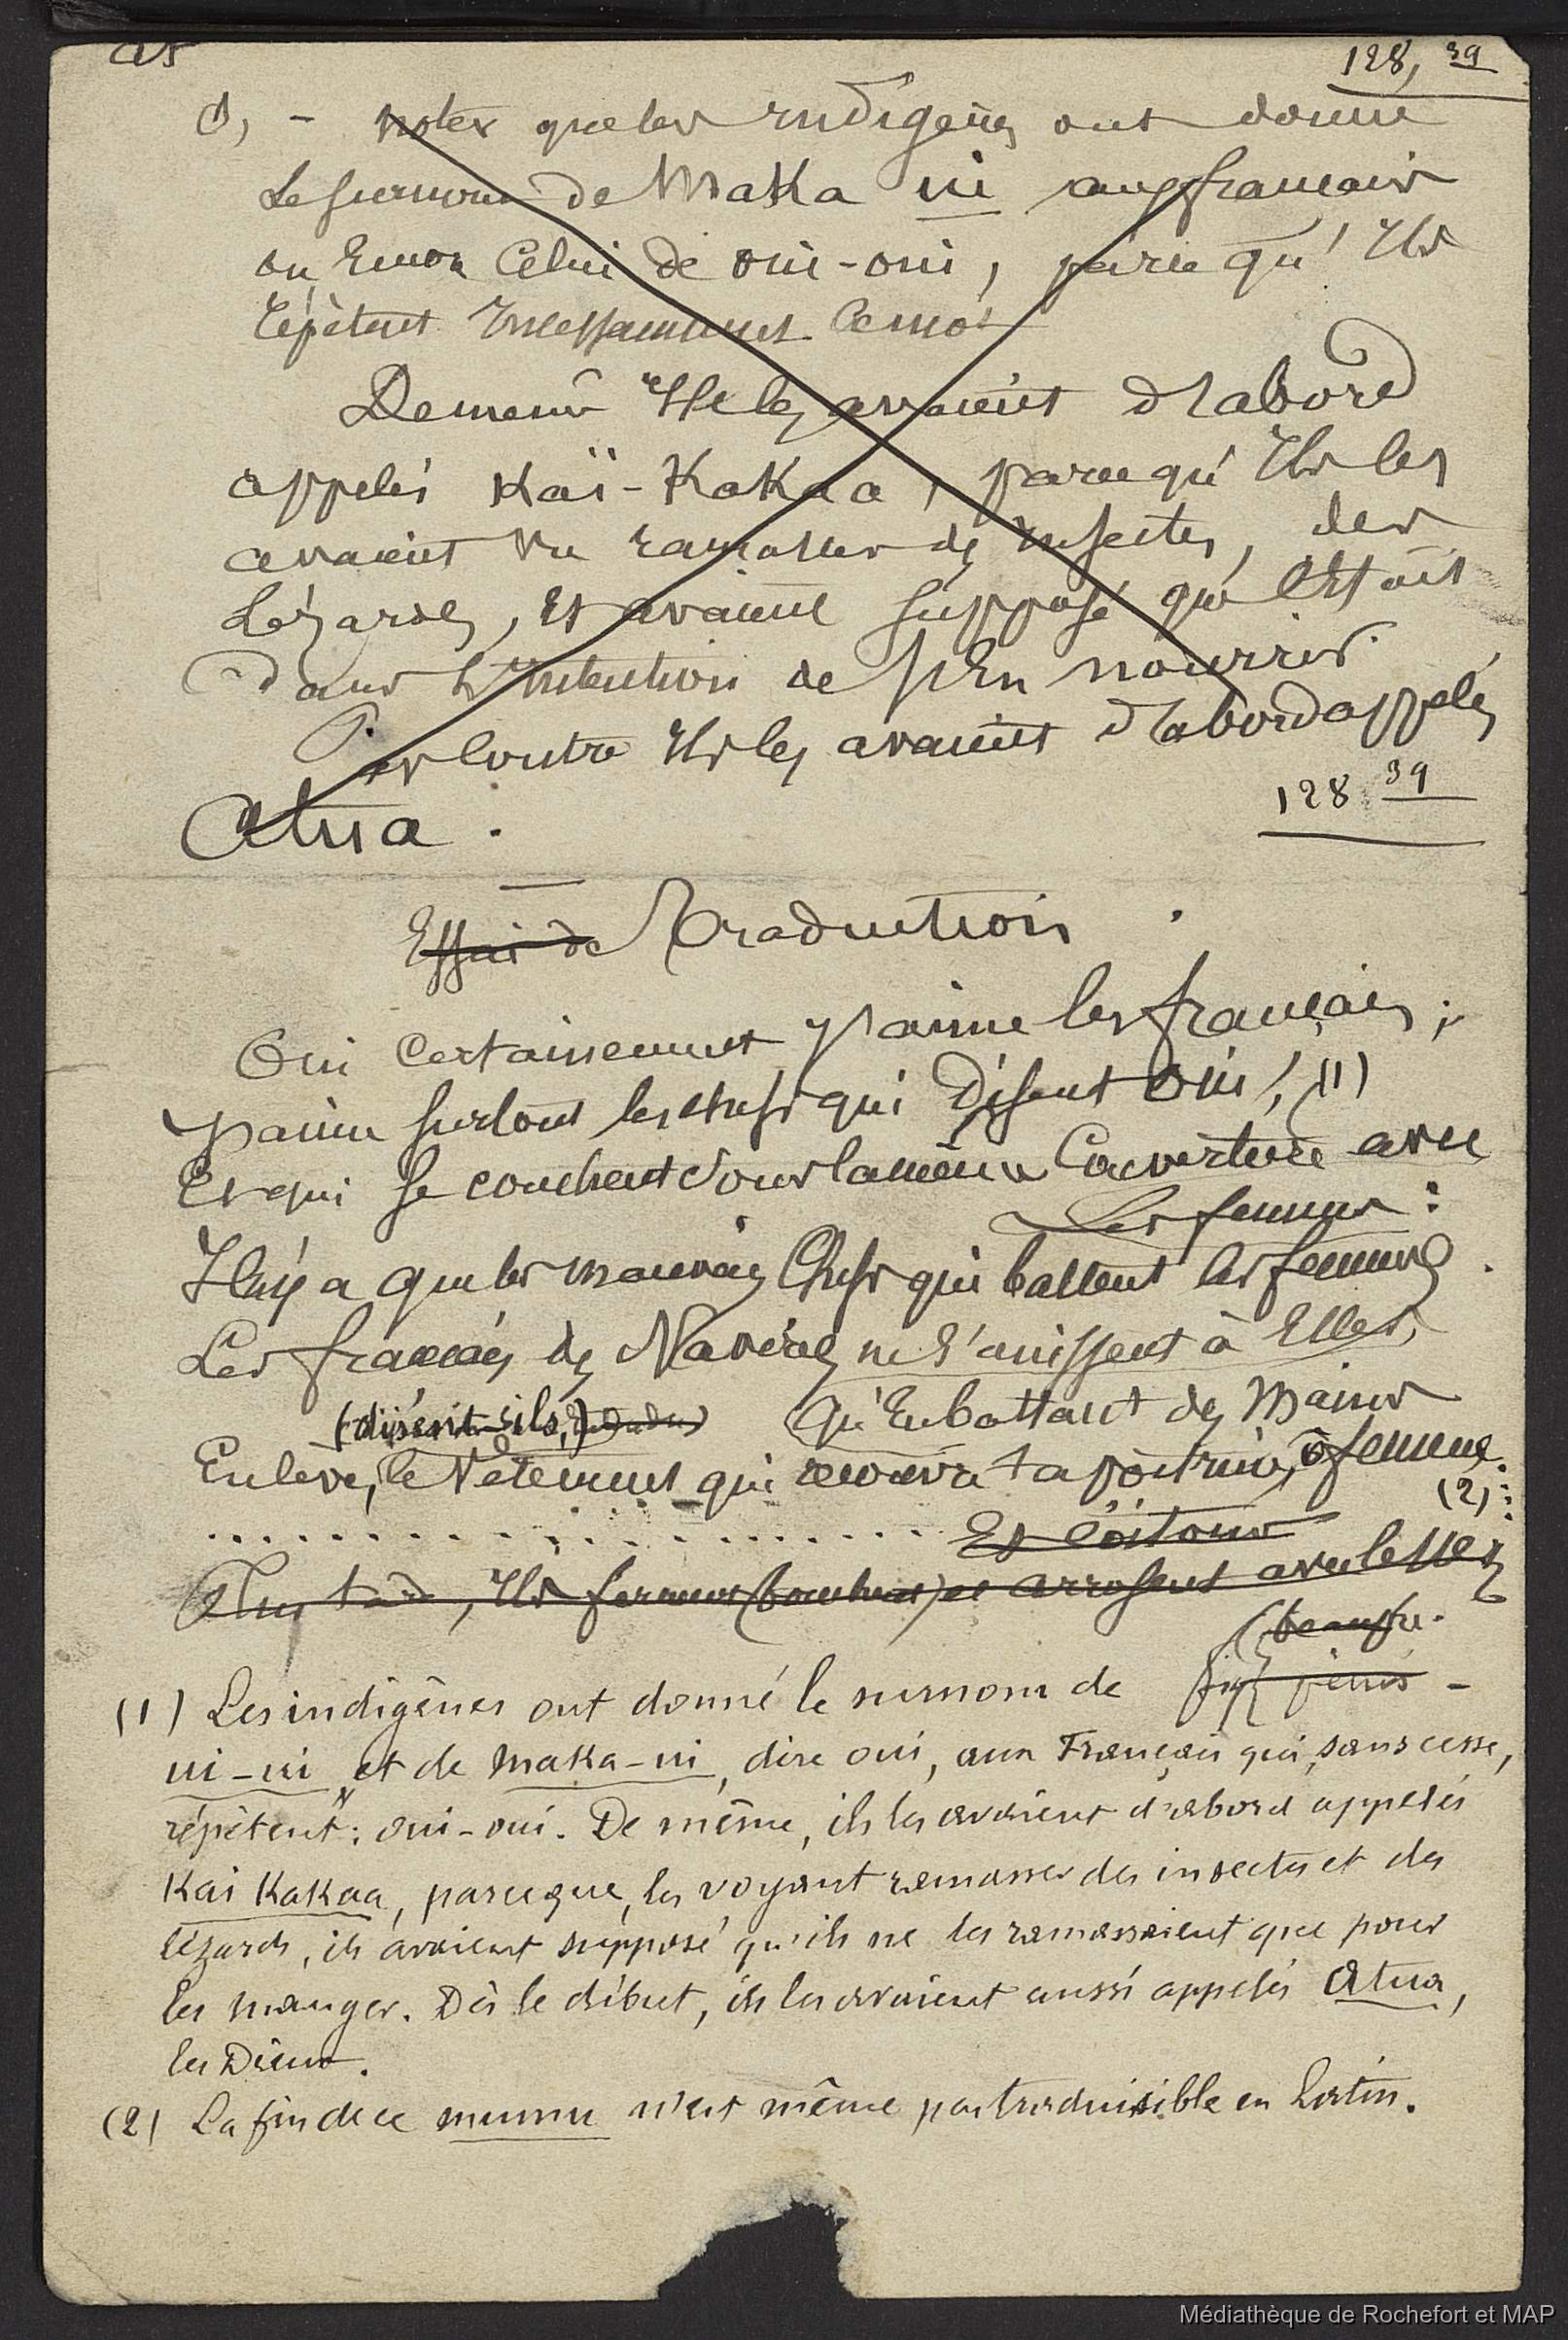 128, 39
1, - noter que les indigènes ont donné
le surnom de Maka ui aux français
ou encor celui de oui-oui, parce qu'Ils
répètent Incessamment ce mot
De même Ils les avaient d'abord
appelés Kaï-Kakaa, parce qu'Ils les
avaient vu ramasser des insectes, des
Lézards, Et avaient supposé que c'Etait
dans l'Intention de s'En nourrir.
Par Contre Ils les avaient d'abord appelés
Atua.
128 39
Essai de Traduction.
Oui certainement, j'aime les français;
j'aime surtout les chefs qui Disent oui, (1)
Et qui se couchent sous la même Couverture avec
les femmes:
Il n'y a que les mauvais Chefs qui battent les femmes.
Les français des Navires ne s'unissent à Elles,
Qu'En battant des Mains
(disent-ils,)
Enlève, le Vêtement qui recouvre ta poitrine, ô femme.
(2)
Et
Plus tard, Ils ferment (bouchent) et arrosent avec
(1) Les indigènes ont donné le surnom de
ui-ui et de maka-ui, dire oui, aux Français qui, sans cesse,
répètent: oui-oui. De même, ils les avaient d'abord appelés
Kai Kakaa, parceque, les voyant ramasser des insectes et des
lézards, ils avaient supposé qu'ils ne les ramassaient que pour
les manger. Dès le début, ils les avaient aussi appelés Atua,
les Dieux.
(2) La fin de ce mumu n'est même pas traduisible en Latin.
Médiathèque de Rochefort et MAP